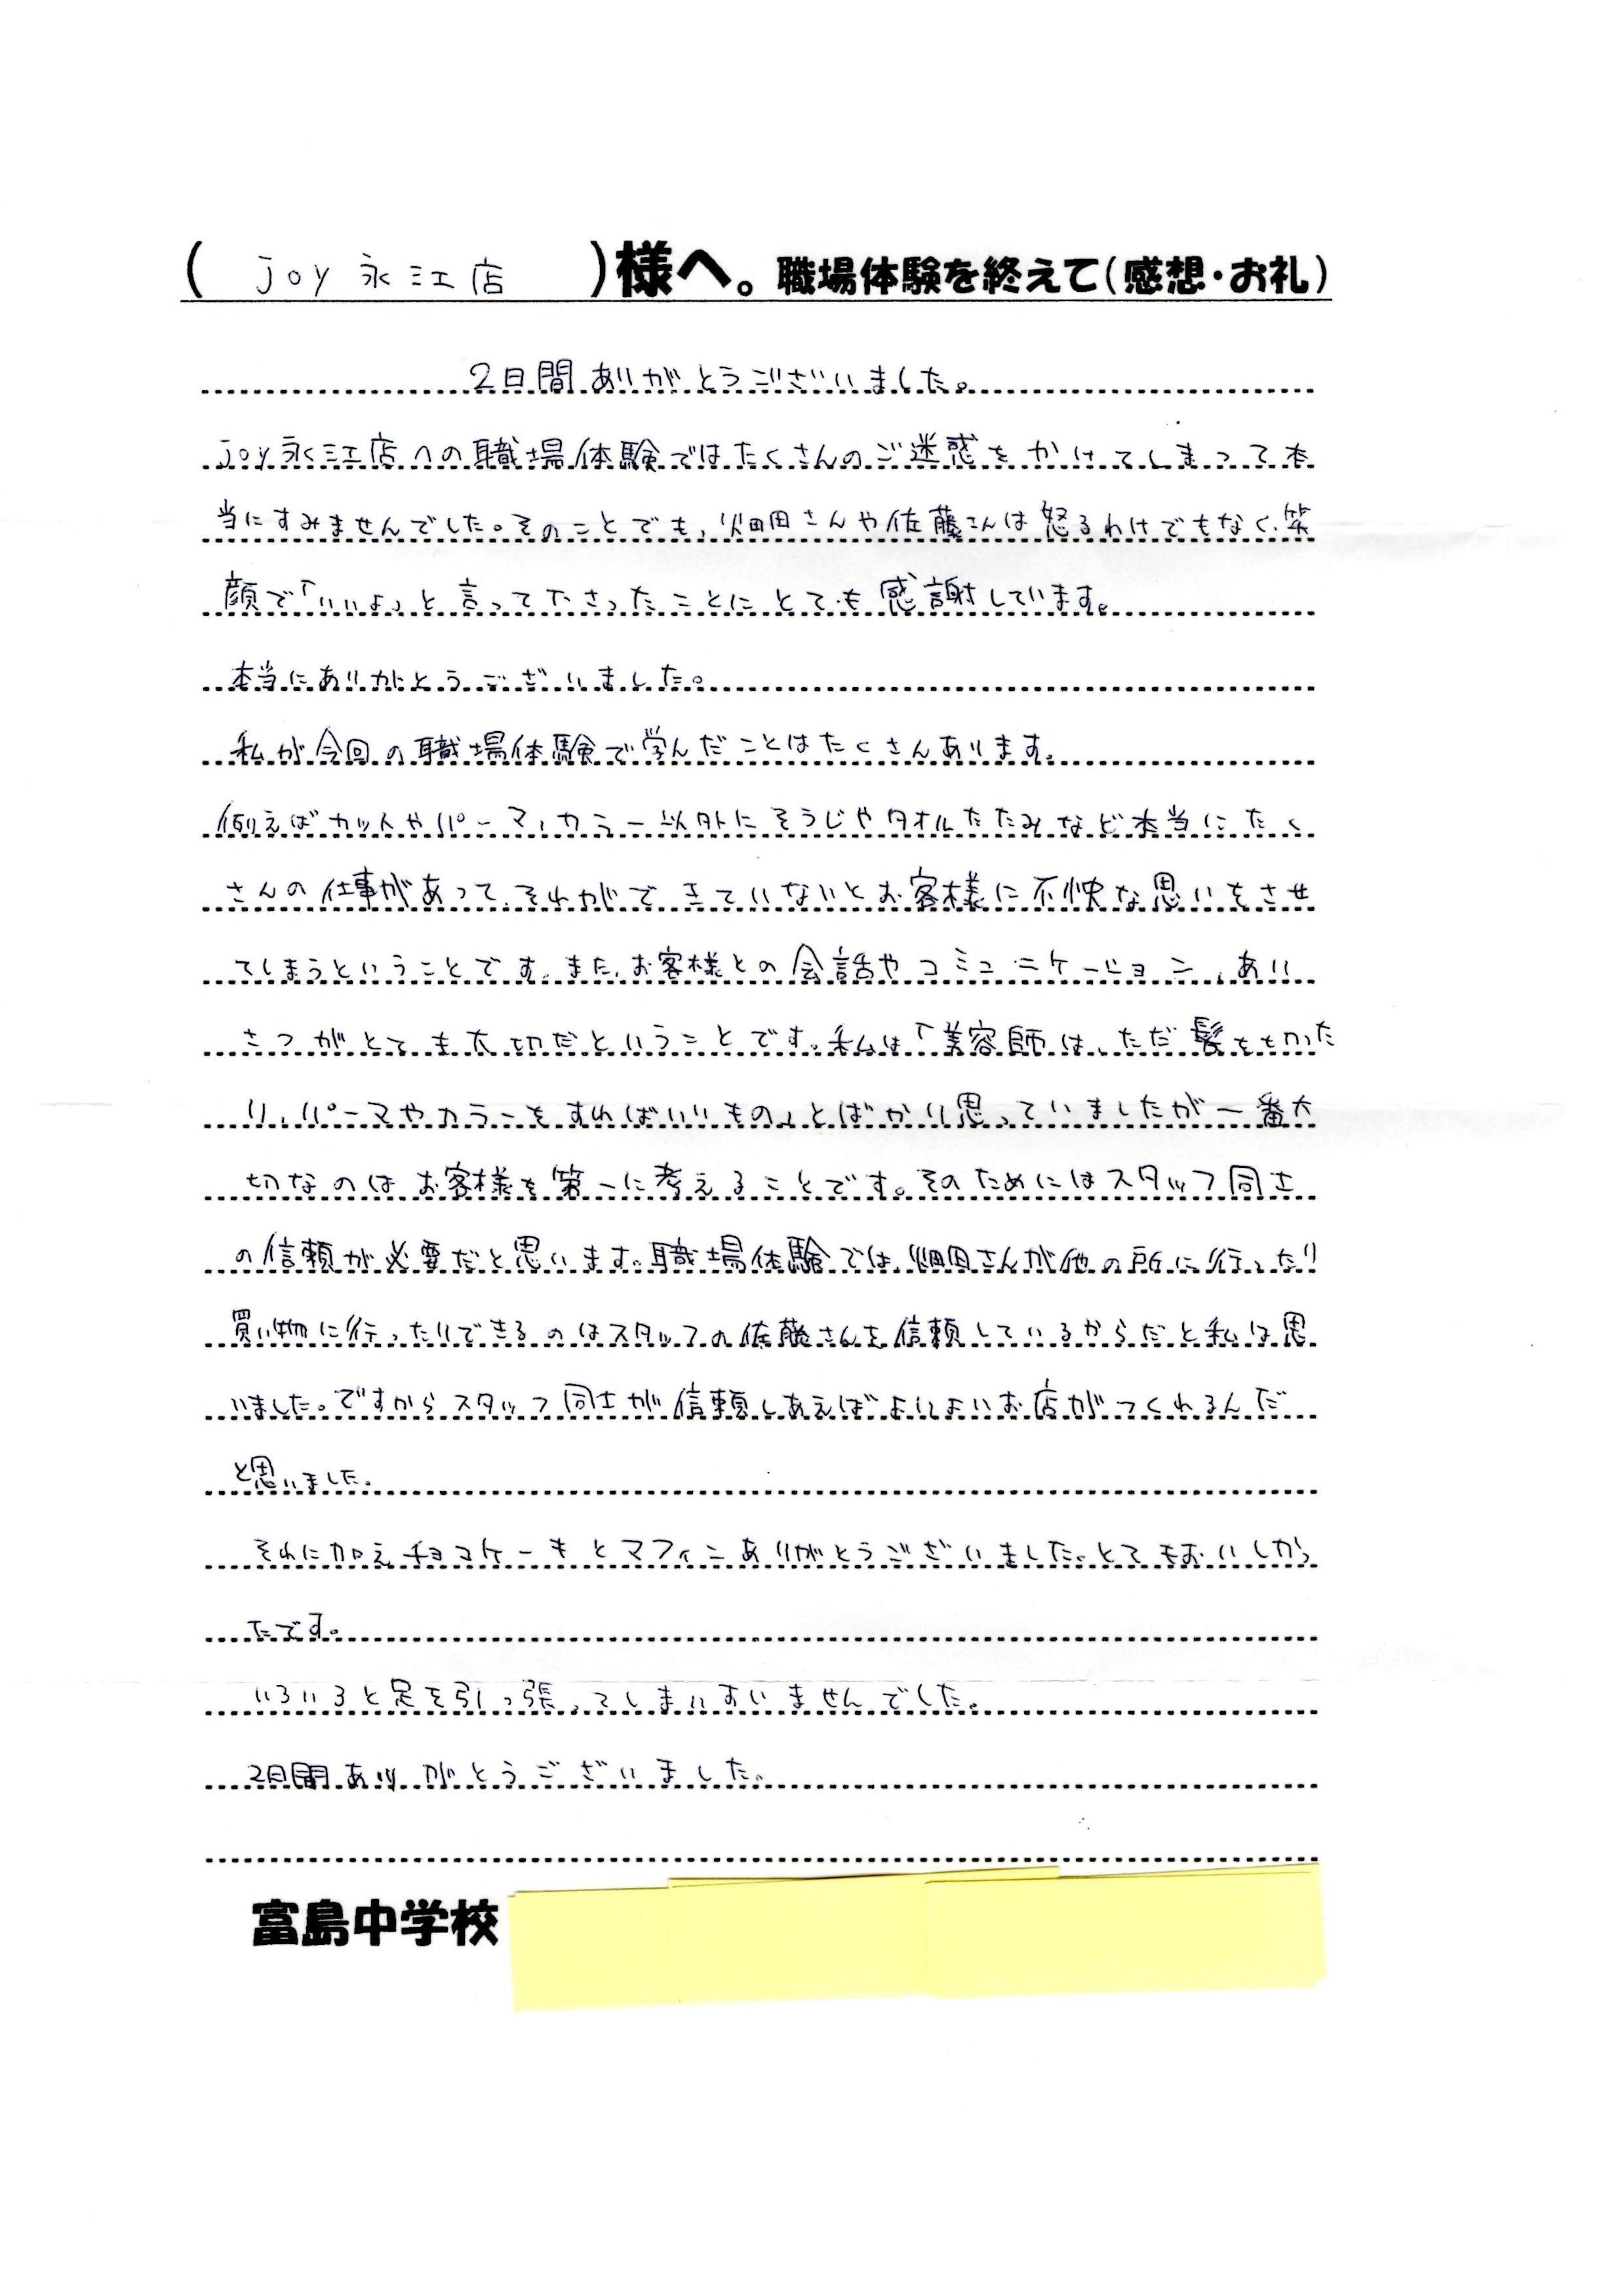 ( joy 永江店 )様へ。職場体験を終えて(感想・お礼)
2日間ありがとうございました。
joy永江店への職場体験ではたくさんのご迷惑をかけてしまって本
当にすみませんでした。そのことでも、畑田さんや佐藤さんは怒るわけでもなく、笑
顔で「いいよ」と言って下さったことにとても感謝しています。
本当にありがとうございました。
私が今回の職場体験で学んだことはたくさんあります。
例えばカットやパーマ、カラー以外にそうじやタオルたたみなど本当にたく
さんの仕事があって、それができていないとお客様に不快な思いをさせ
てしまうということです。また、お客様との会話やコミュニケーション、あい
さつがとても大切だということです。私は「美容師は、ただ髪をきった
り、パーマやカラーをすればいいもの」とばかり思っていましたが一番大
切なのはお客様を第一に考えることです。そのためにはスタッフ同士
の信頼が必要だと思います。職場体験では、畑田さんが他の所に行ったり
買い物に行ったりできるのはスタッフの佐藤さんを信頼しているからだと私は思
いました。ですからスタッフ同士が信頼しあえばよりよいお店がつくれるんだ
と思いました。
それに加え、チョコケーキとマフィンありがとうございました。とてもおいしかっ
たです。
いろいろと足を引っ張ってしまいすいませんでした。
2日間ありがとうございました。
富島中学校